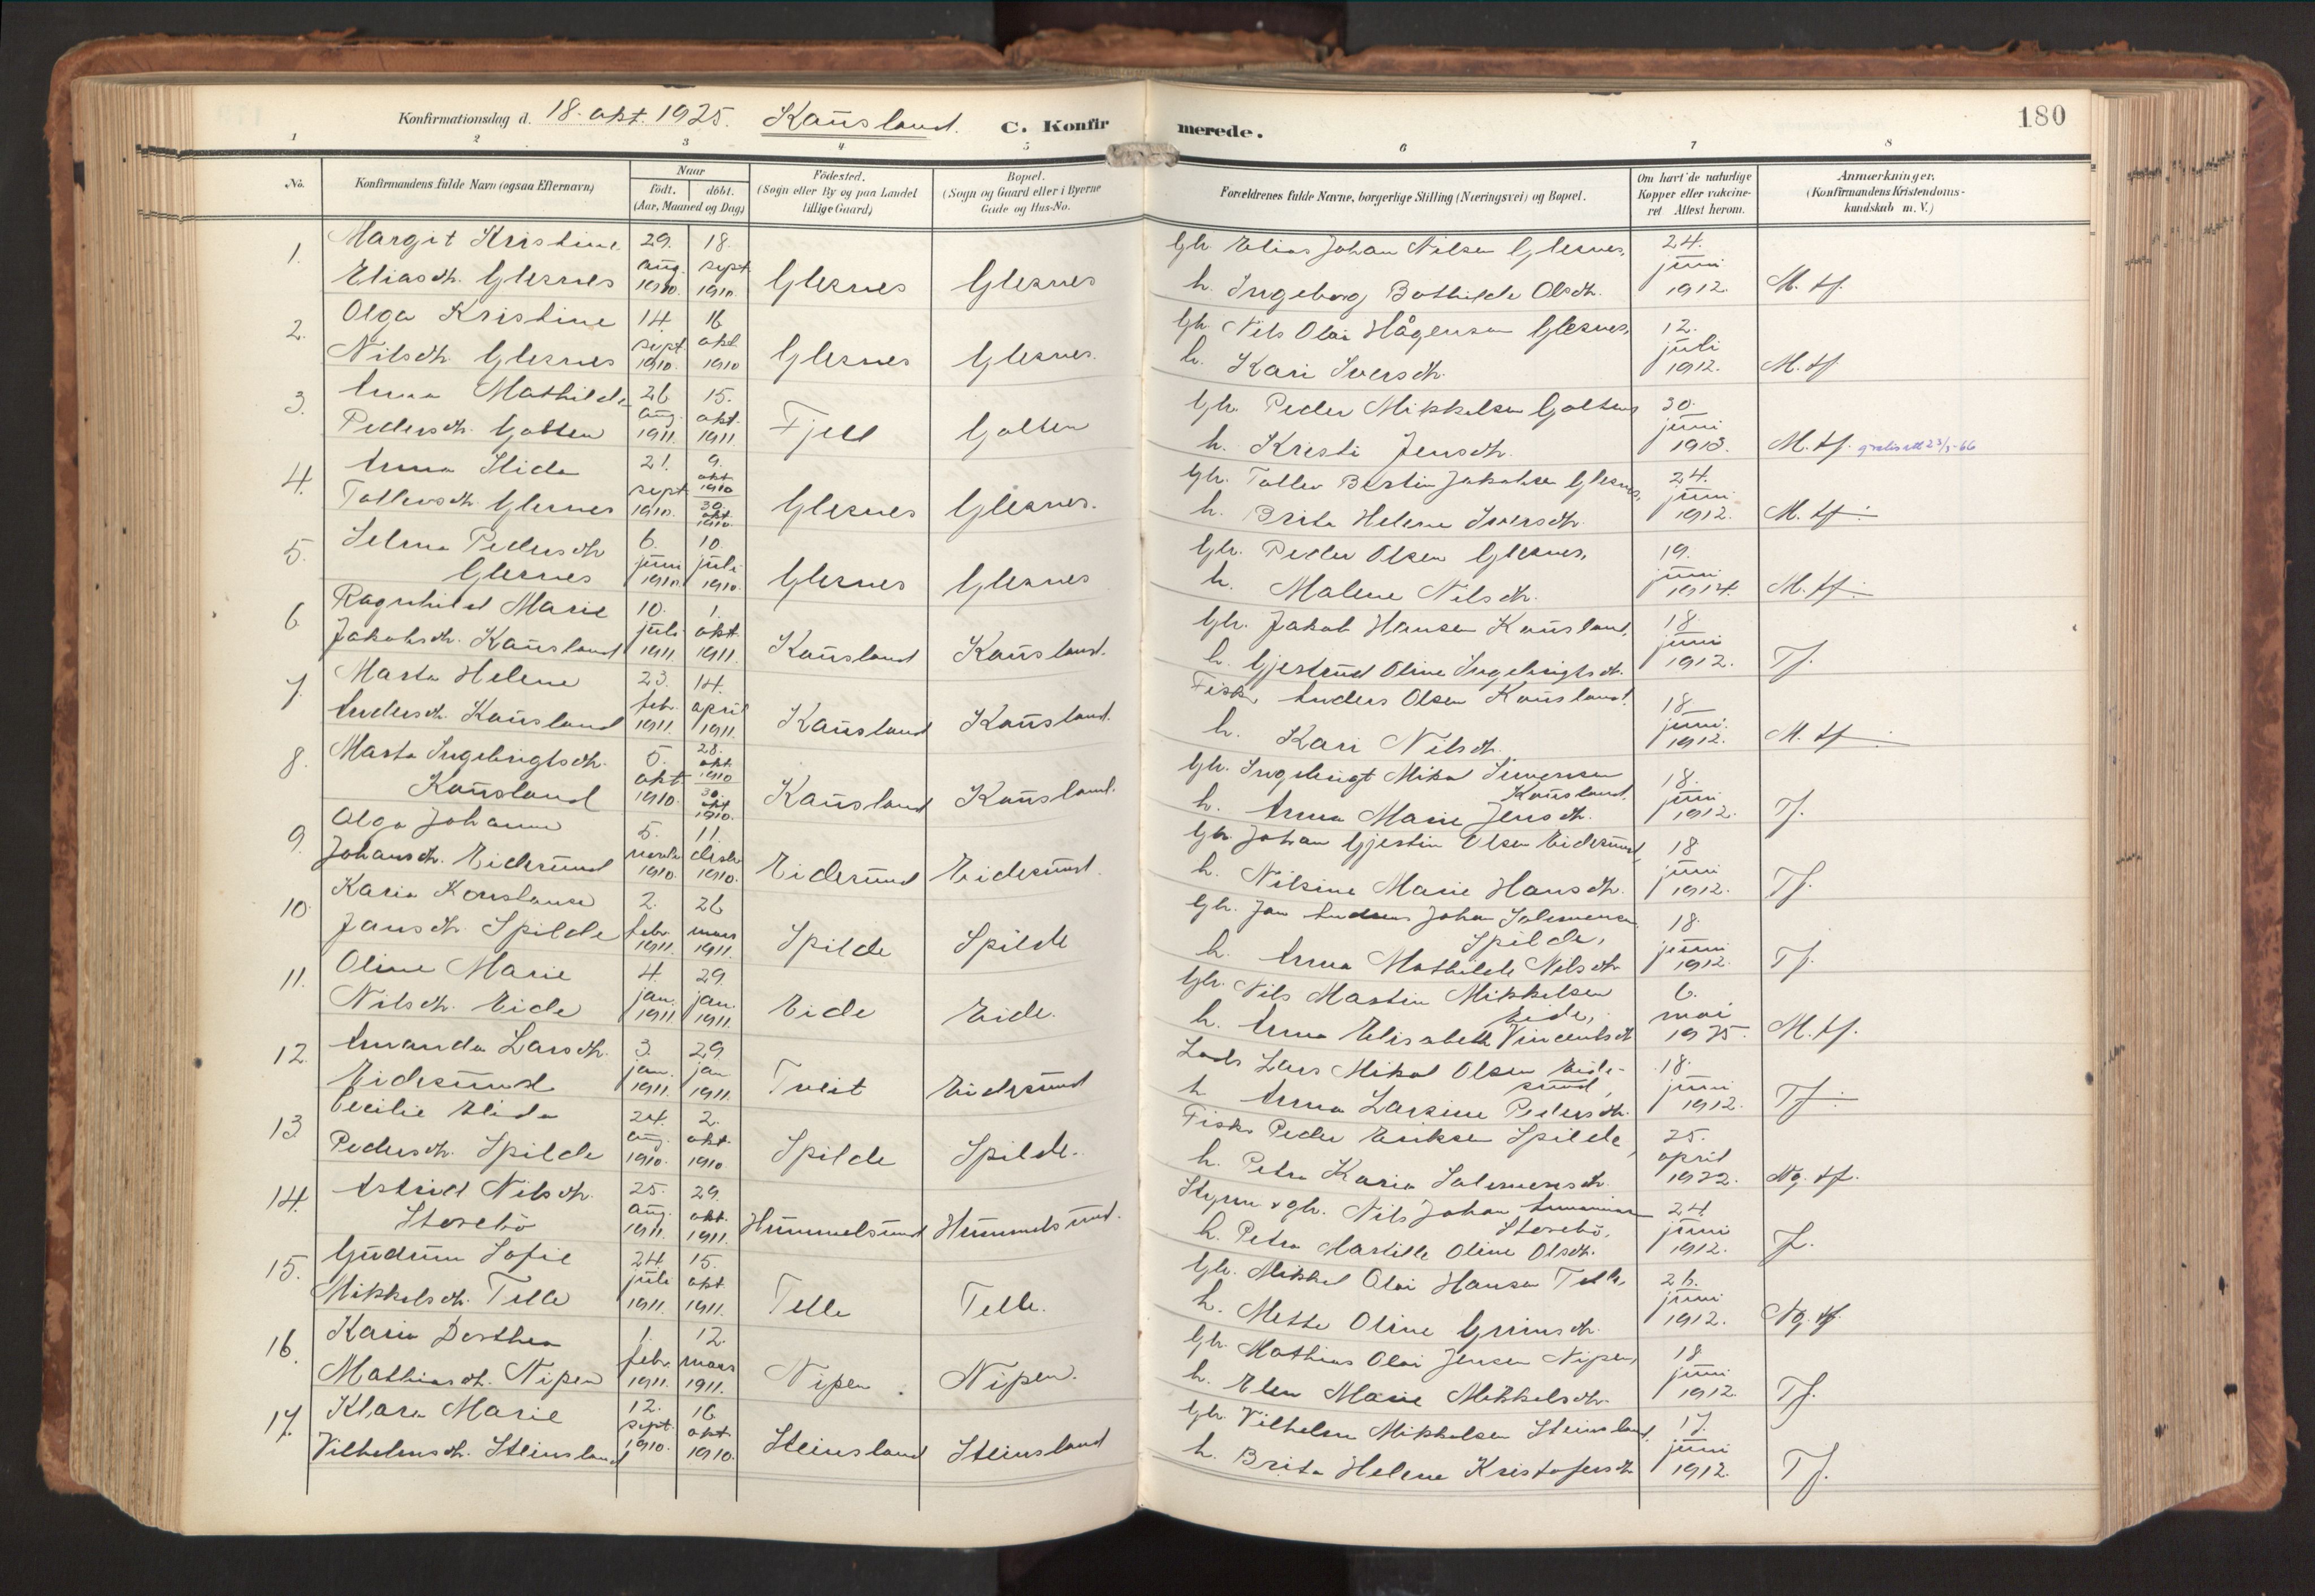 Konfirmationsdag d. 18. okt. 1925. Kausland. C. Konfirmerede. 180
1 2 3 4 5 6 7 8
No. Konfirmandens fulde Navn (ogsaa Efternavn) Naar født. døbt. (Aar, Maaned og Dag) Fødested. (Sogn eller By og paa Landet tillige Gaard) Bopæl. (Sogn og Gaard eller i Byerne Gade og Hus-No. Forældrenes fulde Navne, borgerlige Stilling (Næringsvei) og Bopæl. Om havt de naturlige Kopper eller vakcineret Attest herom. Anmærkninger. (Konfirmandens Kristendomskundskab m. V.)
1. Margit Kristine 29. 18. Gbr. Elias Johan Nilsen Glesnes, 24.
Eliasdtr. Glesnes aug. 1910. sept 1910. Glesnes Glesnes h. Ingeborg Bothilde Olsdtr. juni 1912. M. tf.
2. Olga Kristine 14. 16 Gbr. Nils Olai Hågensen Glesnes, 12.
Nilsdtr. Glesnes sept 1910. okt 1910 Glesnes Glesnes. h. Kari Iversdtr. juli 1912. M. tf
3. Anna Mathilde 26 15. Gbr. Peder Mikkelsen Golten, 30.
Pedersdtr. Golten aug. 1911. okt. 1911. Fjell Golten h. Kristi Jensdtr. juni 1913. M. tf.
4. Anna Ilida 21. 9. okt 1910 Gbr. Tollev Bertin Jakobsen Glesnes, 24.
Tollevsdtr. Glesnes sept 1910. 30. okt 1910. Glesnes Glesnes. h. Brita Helene Iversdtr. juni 1912. M. tf.
5. Selma Pedersdtr 6. 10. Gbr. Peder Olsen Glesnes, 19.
Glesnes juni 1910. juli 1910. Glesnes Glesnes h. Malene Nilsdtr. juni 1914. M. tf.
6. Ragnhild Marie 10. 1. Gbr. Jakob Hansen Kausland, 18.
Jakobsdtr. Kausland juli 1911. okt. 1911. Kausland Kausland. h. Gjertrud Oline Ingebrigtsdtr. juni 1912. Tf.
7. Marta Helene 23. 14. Fisk. Anders Olsen Kausland, 18
Andersdtr. Kausland febr. 1911. april 1911. Kausland Kausland. h. Kari Nilsdtr. juni. 1912. M. tf
8. Marta Ingebrigtsdtr. 5. 28. okt 1910 Gbr. Ingebrigt Mikal Simensen Kausland, 18.
Kausland okt 1910. 30. okt 1910. Kausland Kausland. h. Anna Marie Jensdtr. juni 1912. Tf.
9. Olga Johanne 5. 11. Gbr. Johan Gjertin Olsen Eidesund, 18
Johansdtr. Eidesund novbr 1910. desbr 1910. Eidesund Eidesund. h. Nilsine Marie Hansdtr. juni 1912. Tf.
10. Karia Konstanse 2. 26 Gbr. Jan Andreas Johan Salemonsen Spilde, 18.
Jansdtr. Spilde febr. 1911. mars 1911. Spilde Spilde h. Anna Mathilde Nilsdtr juni 1912. Tf.
11. Oline Marie 4. 29. Gbr. Nils Martin Mikkelsen Eide, 6.
Nilsdtr. Eide jan. 1911. jan. 1911. Eide Eide. h. Anna Elisabeth Vincentsdtr mai 1925. M. tf.
12. Amanda Larsdtr. 3. 29. Lods Lars Mikal Olsen Eidesund, 18.
Eidesund jan. 1911. jan 1911. Tveit Eidesund h Anna Larsine Pedersdtr. juni 1912. Tf.
13 Cecilie Elida 24. 2. Fisk. Peder Eriksen Spilde, 25.
Pedersdtr. Spilde aug. 1910. okt. 1910. Spilde Spilde. h. Petra Karia Salemonsdtr. april 1922. Ng. tf.
14. Astrid Nilsdtr. 25. 29. Nils Johan Storebö, 24.
Storebö aug. 1911. okt. 1911. Hummelsund Hummelsund. h. Petra Oline Olsdtr. juni 1912.
15. Gudrun Sofie 24 15. Gbr. Mikkel Olai Hansen Telle, 26.
Mikkelsdtr. Telle juli 1911. okt 1911. Telle Telle. h. Mette Oline Grimsdtr. juni 1912. Ng. tf.
16. Karia Dorthea 1. 12. Gbr. Mathias Olai Jensen Nipen, 18
Mathiasdtr. Nipen febr. 1911. mars 1911. Nipen. Nipen. h. Elen Marie Mikkelsdtr. juni 1912. Tf.
17. Klara Marie 12. 16 Gbr. Vilhelm Mikkelsen Steinsland, 17.
Vilhelmsdtr. Steinsland sept. 1910. okt 1910. Steinsland Steinsland h. Brita Helene Kristofersdtr juni 1912. Tf.